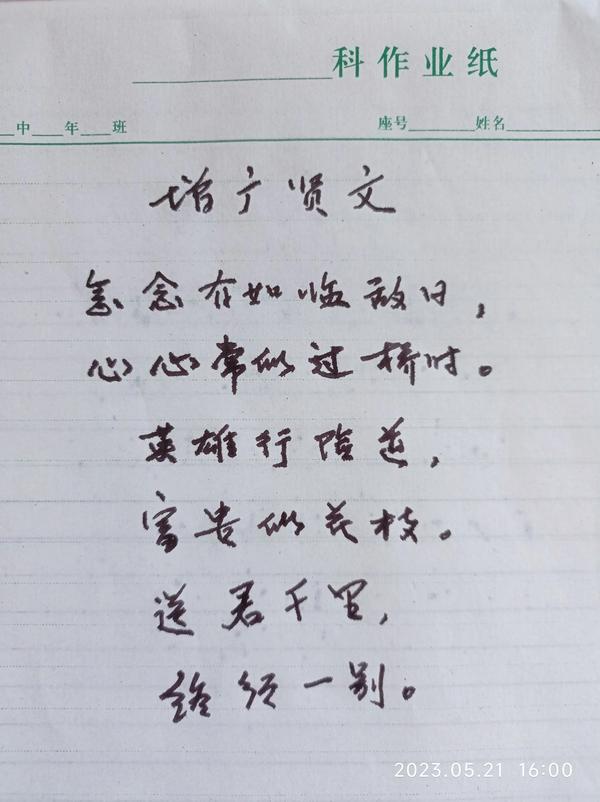 科作业纸
中 年 班 座号 姓名
增广贤文
念念有如临敌日，
心心常似过桥时。
英雄行险道，
富贵似花枝。
送君千里，
终须一别。
2023.05.21 16:00